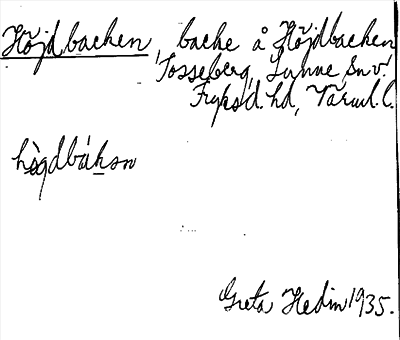 Höjdbacken, backe å Höjdbacken
Tosseberg, Sunne, Sn v.
Fryksd. hd, Värml. l.
hö̀gdbákən
Greta Hedin 1935.